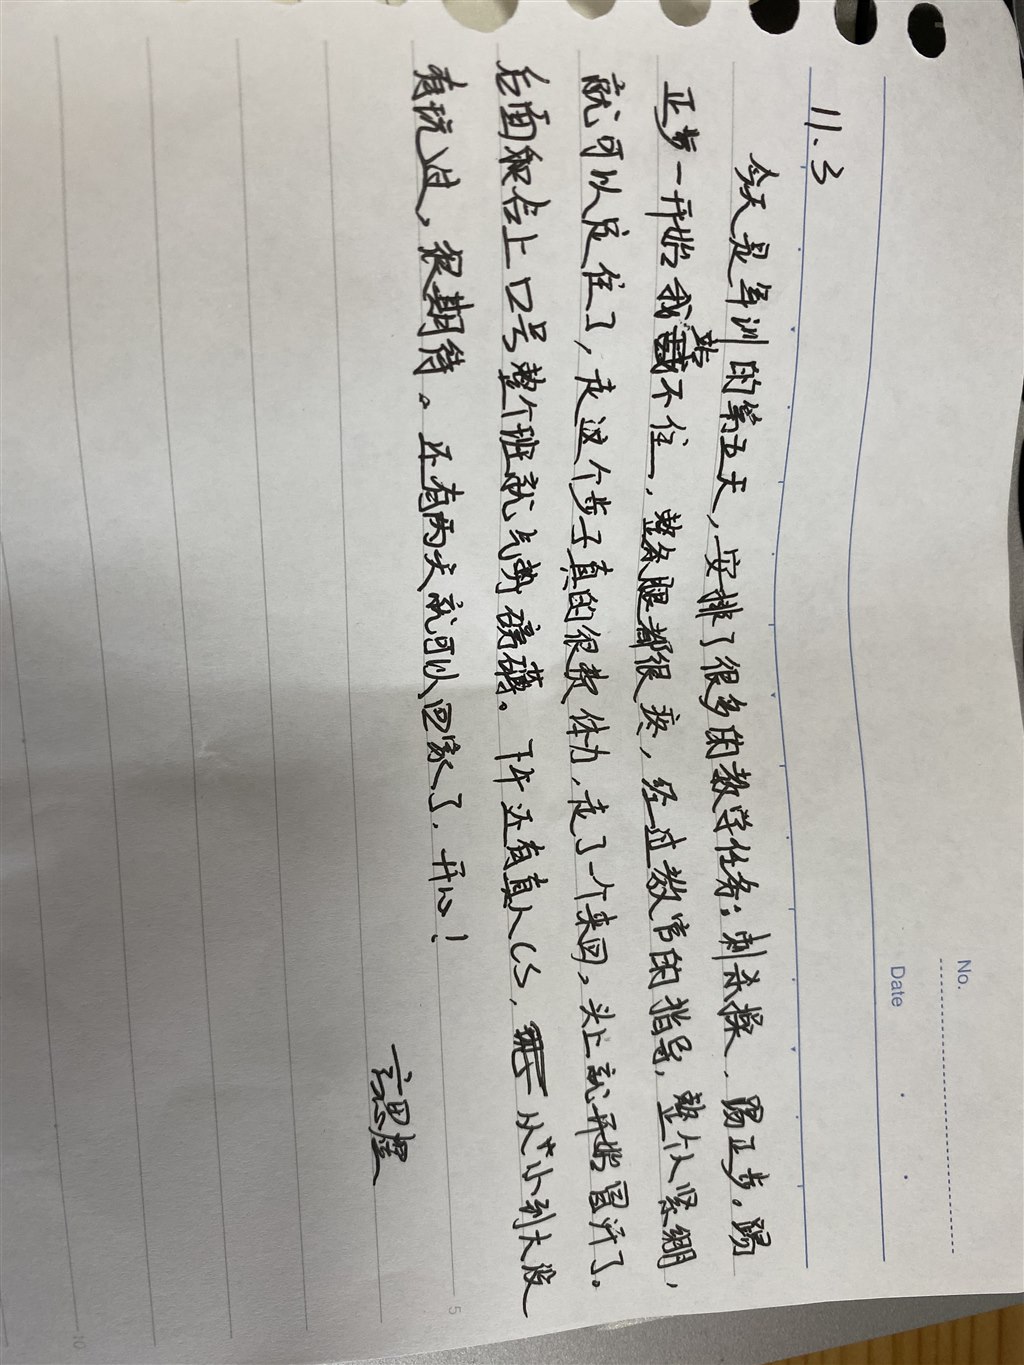 No.
Date
11.3
今天是军训的第五天，安排了很多的教学任务：刺杀操、踢正步。踢
正步一开始我站不住，整条腿都很疼，经过教官的指导，整个人紧绷，
就可以定住了，走这个步子真的很费体力，走了一个来回，头上就开始冒汗了。
后面配合上口号整个班就气势磅礴。下午还有真人CS，从小到大没
有玩过，很期待。还有两天就可以回家了，开心！
5
10